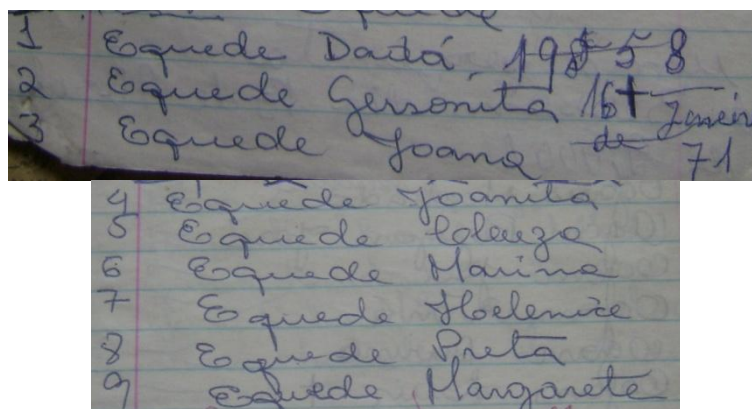 1 Equede Dadá 1958
2 Equede Gersonita 16
3 Equede Joana de 71
4 Equede Joanita
5 Equede Cleuza
6 Equede Marina
7 Equede Helenice
8 Equede Preta
9 Equede Margarete